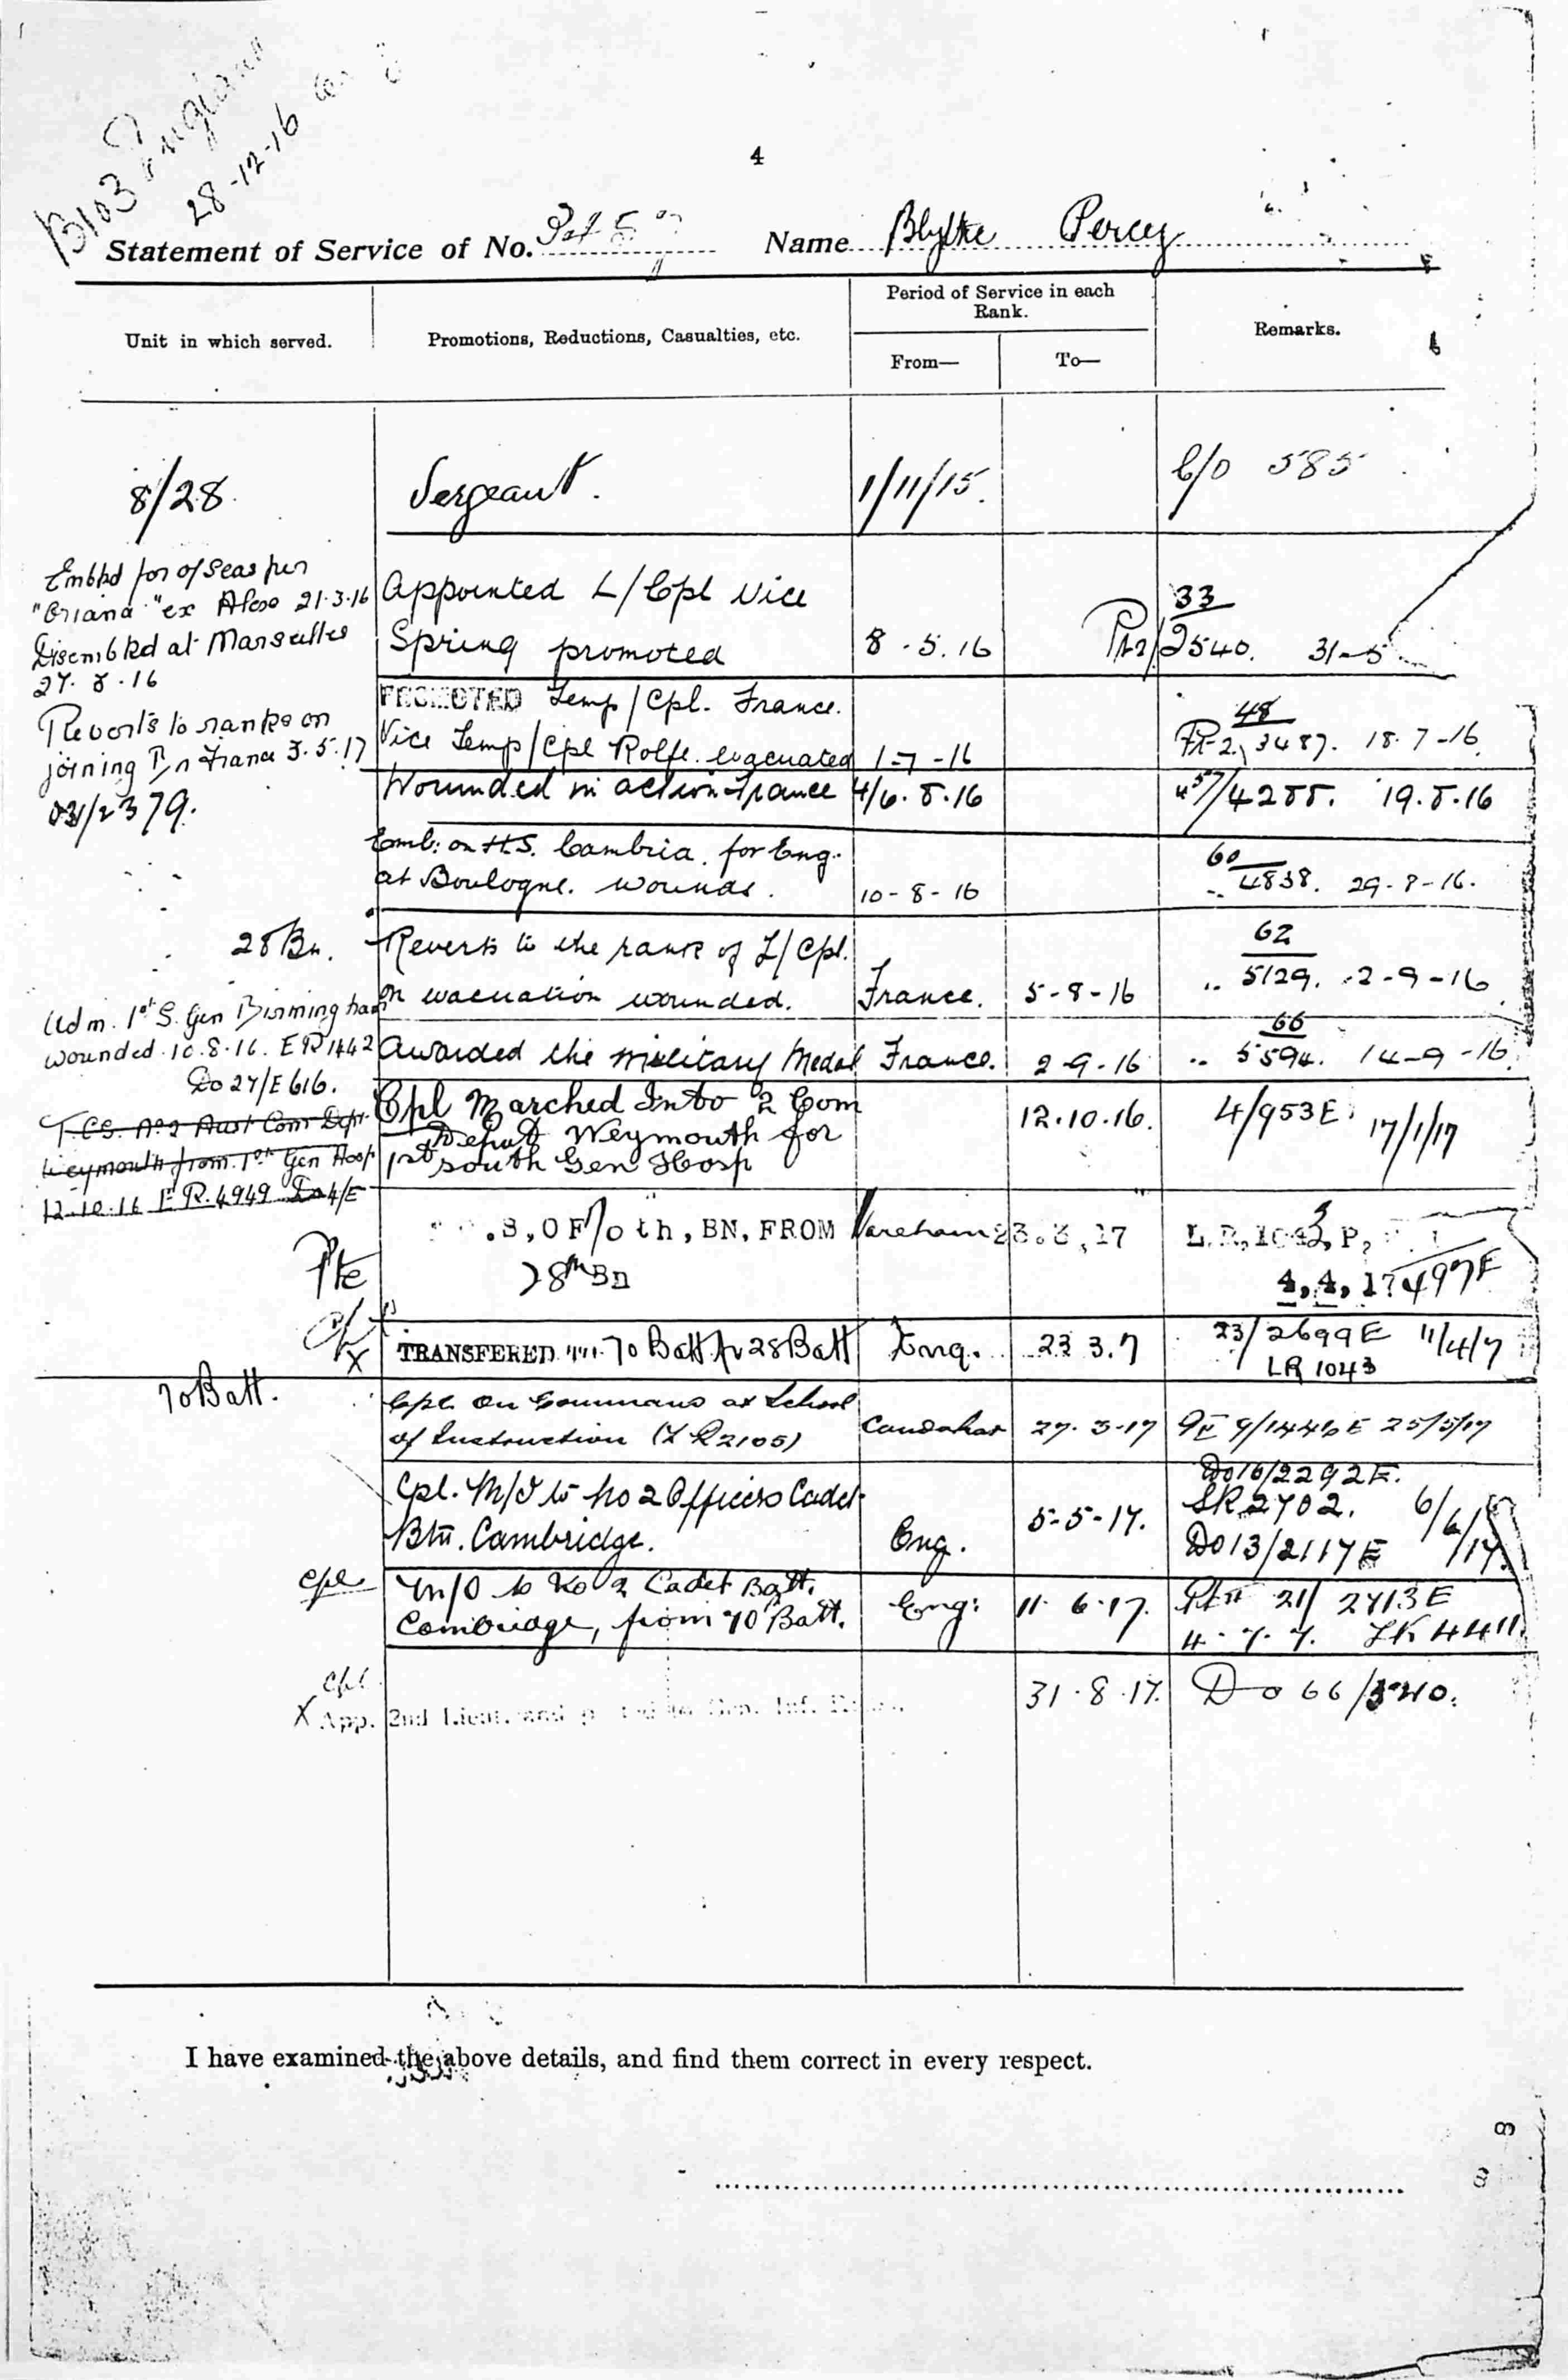 B103 England
28-12-16
4
Statement of Service of No. Name Blythe Percy
Unit in which served.
Promotions, Reductions, Casualties, etc.
Period of Service in each Rank.
From—
To—
Remarks.
8/28. Sergeant. 1/11/15. C/O 585
Embkd for o/seas per
"Oriana" ex Alex 21.3.16
Disembkd at Marseilles
27. 3. 16
Reverts to ranks on
joining Bn France 3.5.17
2379.
Appointed L/Cpl Vice
Spring promoted 8.5.16 33
Pt2/2540. 31-5
PROMOTED Temp/Cpl. France.
Vice Temp/Cpl Rolfe evacuated 1-7-16 48
Pt 2. 3487. 18.7-16
Wounded in action France 4/6.8.16 57/4288. 19.8.16
Emb: on H.S. Cambria. for Eng.
at Boulogne. wounds. 10-8-16 60
4838. 29-8-16.
28 Bn. Reverts to the rank of L/Cpl.
on evacuation wounded. France. 5-8-16 62
5129. 2-9-16
Adm. 1st S. Gen Birmingham
wounded 10.8.16. E R 1442
Do 27/E 616.
Awarded the Military Medal France. 2-9-16 66
5594. 14-9-16
T.C.S. No 2 Aust Com Dept
Weymouth from 1st Gen Hosp
12.10.16 E R. 4949 Do 4/E
Cpl Marched Into 2 Com
Depot Weymouth for
1st South Gen Hosp 12.10.16. 4/953E. 17/1/17
Pte
.S, OF 70th, BN, FROM Wareham 23.3,17
28th Bn
4,4,17 497E
TRANSFERED TO 70 Batt fr 28 Batt Eng. 23 3.7 23/2699E 11/4/7
LR 1043
70 Batt.
Cpl. On Command at School
of Instruction (LR 2105) Candahar 27.3-17 9/1446E 25/5/17
Cpl. M/O to No 2 Officers Cadet
Btn. Cambridge. Eng. 5-5-17. Do 16/2292E.
LR 2702. 6/6/17
Do 13/2117E
Cpl
M/O to No 2 Cadet Batt.
Cambridge, from 70 Batt. Eng: 11.6.17. Pt II 21/2713E
4.7.7. LR 4411
Cpl
X App. 2nd Lieut. and posted to Gen. Inf. 31.8.17. Do 66/
I have examined the above details, and find them correct in every respect.
8
8